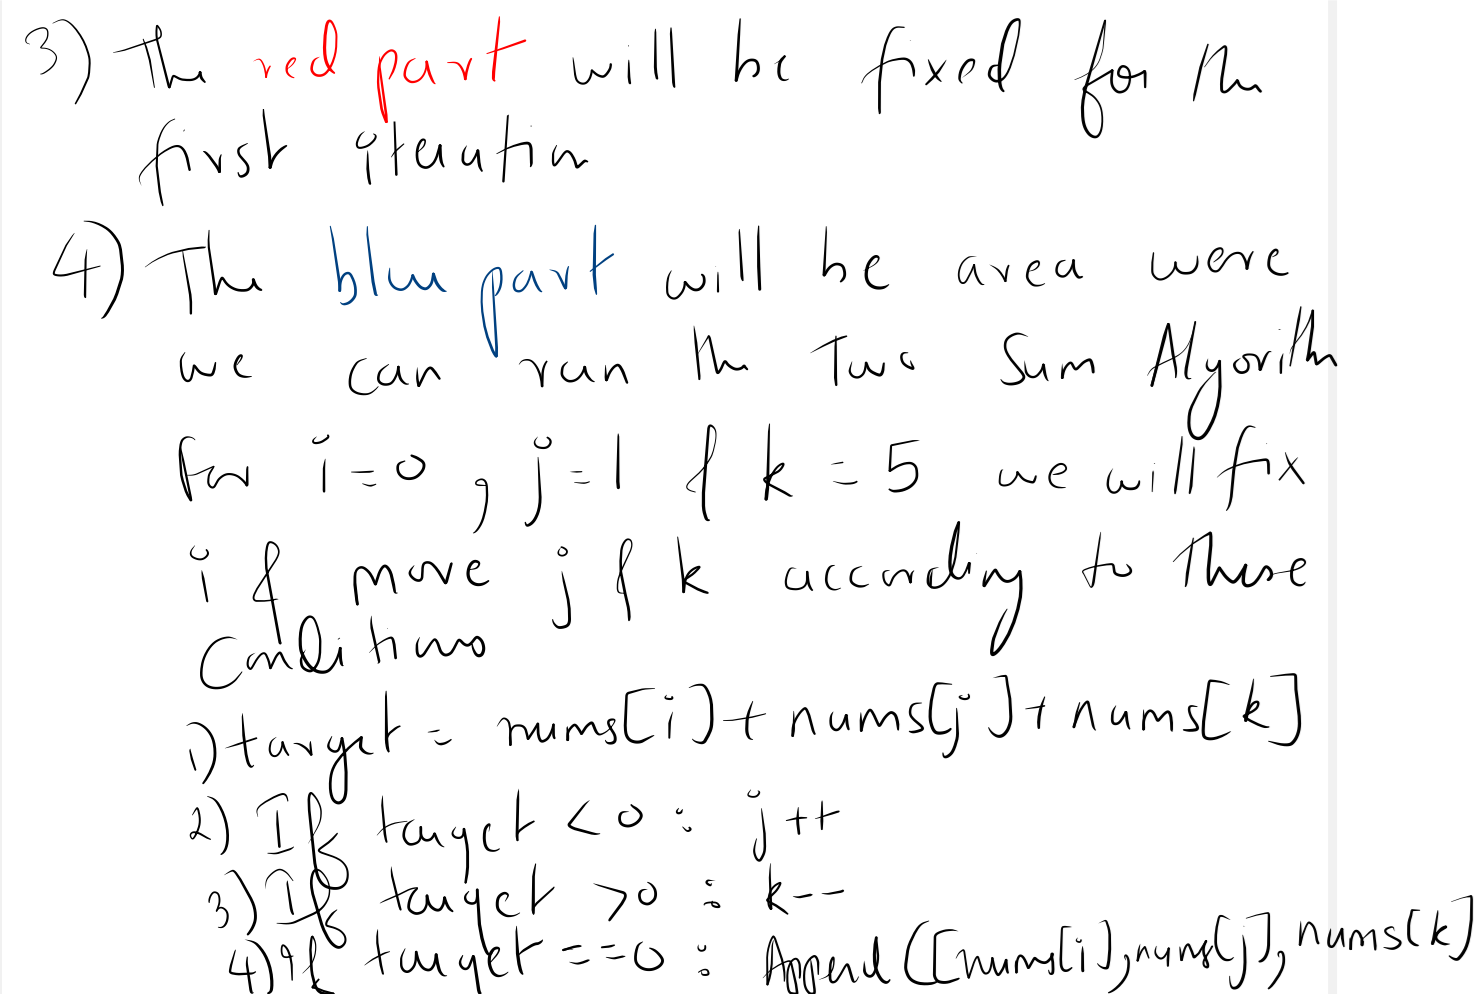 3) The red part will be fixed for the
first iteration
4) The blue part will be area were
we can run the Two Sum Algorithm
for i=0, j=1 & k=5 we will fix
i & move j & k according to these
Conditions
1) target = nums[i]+nums[j]+nums[k]
2) If target <0: j++
3) If target >0: k--
4) if target ==0: Append([nums[i],nums[j],nums[k]